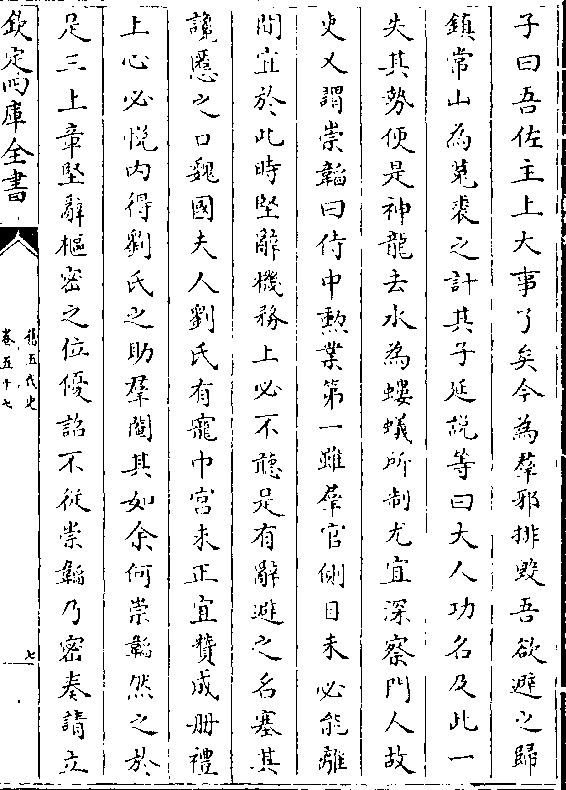 子曰吾佐主上大事了矣今為羣邪排毀吾欲避之歸
鎮常山為菟裘之計其子延說等曰大人功名及此一
失其勢便是神龍去水為螻蟻所制尤宜深察門人故
吏又謂崇韜曰侍中勲業第一雖羣官側目未必能離
間宜於此時堅辭機務上必不聽是有辭避之名塞其
讒慝之口魏國夫人劉氏有寵中宮未正宜贊成册禮
上心必悅内得劉氏之助羣閹其如余何崇韜然之於
是三上章堅辭樞密之位優詔不從崇韜乃密奏請立
欽定四庫全書
舊五代史
卷五十七
七